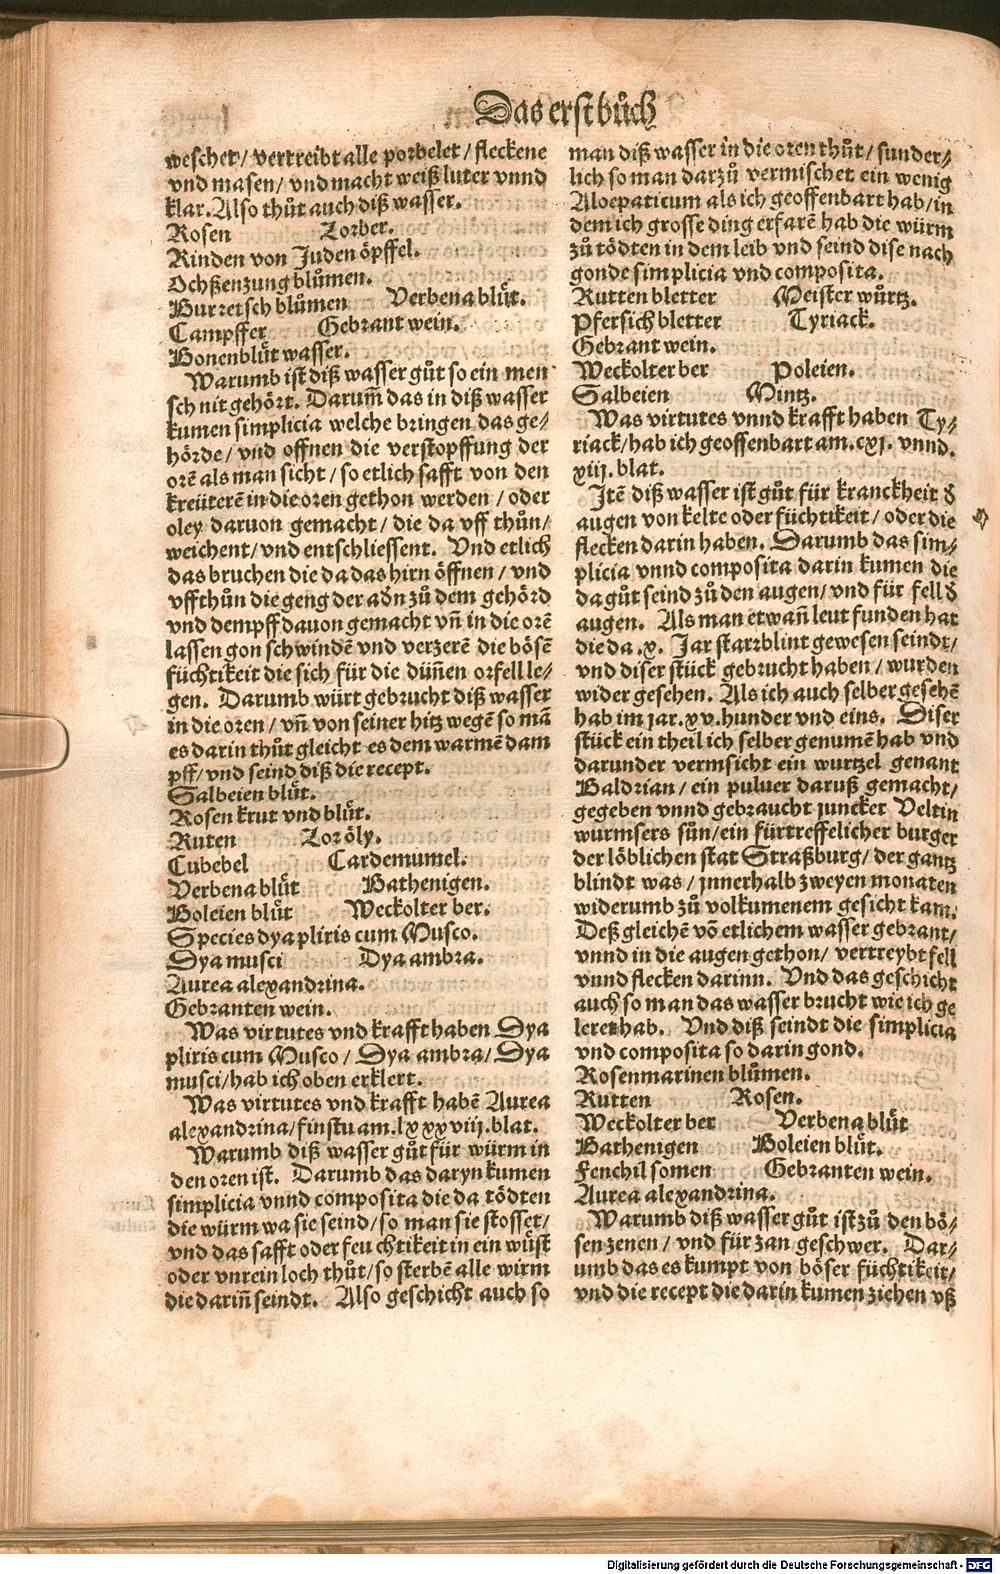 Das erst bůch
weschet/ vertreibt alle porbelet/ fleckene
vnd masen/ vnd macht weiß luter vnnd
klar. Also thůt auch diß wasser.
Rosen Lorber.
Rinden von Juden öpffel.
Ochßenzung blůmen.
Burretsch blůmen Verbena blůt.
Campffer Gebrant wein.
Bonenblůt wasser.
Warumb ist diß wasser gůt so ein men
sch nit gehört. Darum̃ das in diß wasser
kumen simplicia welche bringen das ge⸗
hörde/ vnd offnen die verstopffung der
orẽ als man sicht/ so etlich safft von den
kreüterẽ in die oren gethon werden/ oder
oley daruon gemacht/ die da vff thůn/
weichent/ vnd entschliessent. Vnd etlich
das bruchen die da das hirn öffnen/ vnd
vffthůn die geng der adn zů dem gehörd
vnd dempff dauon gemacht vñ in die orẽ
lassen gon schwindẽ vnd verzerẽ die bösẽ
füchtikeit die sich für die düñen orfell le⸗
gen. Darumb würt gebrucht diß wasser
in die oren/ vñ von seiner hitz wegẽ so mã
es darin thůt gleicht es dem warmẽ dam
pff/ vnd seind diß die recept.
Salbeien blůt.
Rosen krut vnd blůt.
Ruten Lor öly.
Cubebel Cardemumel.
Verbena blůt Bathenigen.
Boleien blůt Weckolter ber.
Species dya pliris cum Musco.
Dya musci Dya ambra.
Aurea alexandrina.
Gebranten wein.
Was virtutes vnd krafft haben Dya
pliris cum Musco/ Dya ambra/ Dya
musci/ hab ich oben erklert.
Was virtutes vnd krafft habẽ Aurea
alexandrina/ finstu am. lxxxviij. blat.
Warumb diß wasser gůt für würm in
den oren ist. Darumb das daryn kumen
simplicia vnnd composita die da tödten
die würm wa sie seind/ so man sie stosset/
vnd das safft oder feuchtikeit in ein wůst
oder vnrein loch thůt/ so sterbẽ alle wirm
die dariñ seindt. Also geschicht auch so
man diß wasser in die oren thůt/ sunder⸗
lich so man darzů vermischet ein wenig
Aloepaticum als ich geoffenbart hab/ in
dem ich grosse ding erfarẽ hab die würm
zů tödten in dem leib vnd seind dise nach
gonde simplicia vnd composita.
Rutten bletter Meister wůrtz.
Pfersich bletter Tyriack.
Gebrant wein.
Weckolter ber Poleien.
Salbeien Mintz.
Was virtutes vnnd krafft haben Ty⸗
riack/ hab ich geoffenbart am. cxj. vnnd.
xiij. blat.
Itẽ diß wasser ist gůt für kranckheit d
augen von kelte oder füchtikeit/ oder die
flecken darin haben. Darumb das sim⸗
plicia vnnd composita darin kumen die
da gůt seind zů den augen/ vnd für fell d
augen. Als man etwañ leut funden hat
die da .x. Jar starrblint gewesen seindt/
vnd diser stück gebrucht haben/ wurden
wider gesehen. Als ich auch selber gesehẽ
hab im jar. xv. hunder vnd eins. Diser
stück ein theil ich selber genumẽ hab vnd
darunder vermsicht ein wurtzel genant
Baldrian/ ein puluer daruß gemacht/
gegeben vnnd gebraucht juncker Veltin
wurmsers sůn/ ein fürtreffelicher burger
der löblichen stat Straßburg/ der gantz
blindt was/ jnnerhalb zweyen monaten
widerumb zů volkumenem gesicht kam.
Deß gleichẽ võ etlichem wasser gebrant/
vnnd in die augen gethon/ vertreybt fell
vnnd flecken darinn. Vnd das geschicht
auch so man das wasser brucht wie ich ge
leret hab. Vnd diß seindt die simplicia
vnd composita so darin gond.
Rosenmarinen blůmen.
Rutten Rosen.
Weckolter ber Verbena blůt
Bathenigen Boleien blůt.
Fenchil somen Gebranten wein.
Aurea alexandrina.
Warumb diß wasser gůt ist zů den bö⸗
sen zenen/ vnd für zan geschwer. Dar⸗
umb das es kumpt von böser füchtikeit/
vnd die recept die darin kumen ziehen vß
Digitalisierung gefördert durch die Deutsche Forschungsgemeinschaft - DFG